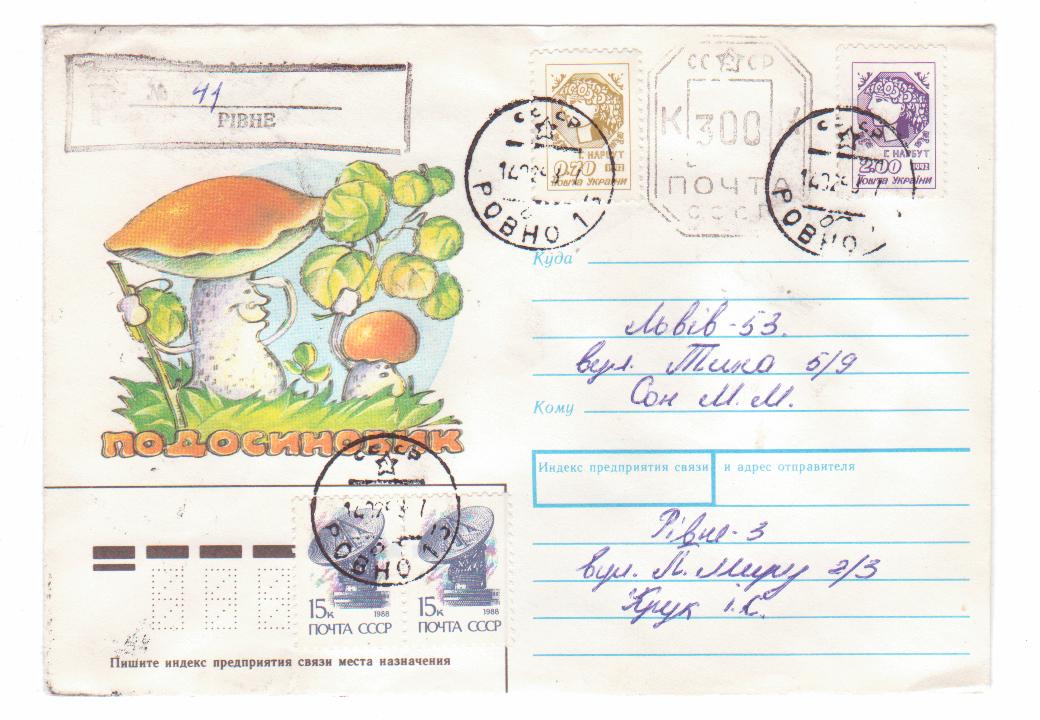 № 41
РІВНЕ
Г. НАРБУТ
0.70 1992
Пошта України
СССР
К 300
ПОЧТА
СССР
Г. НАРБУТ
2.00 1992
Пошта України
СССР
РОВНО 1
СССР
РОВНО
Куда
Львів-53.
вул. Тика 5/9
Кому
Сон М. М.
ПОДОСИНОВИК
Индекс предприятия связи и адрес отправителя
Рівне-3
вул. П. Миру 2/3
Крук І. С.
СССР
РОВНО 1
15к 1988
ПОЧТА СССР
15к 1988
ПОЧТА СССР
Пишите индекс предприятия связи места назначения